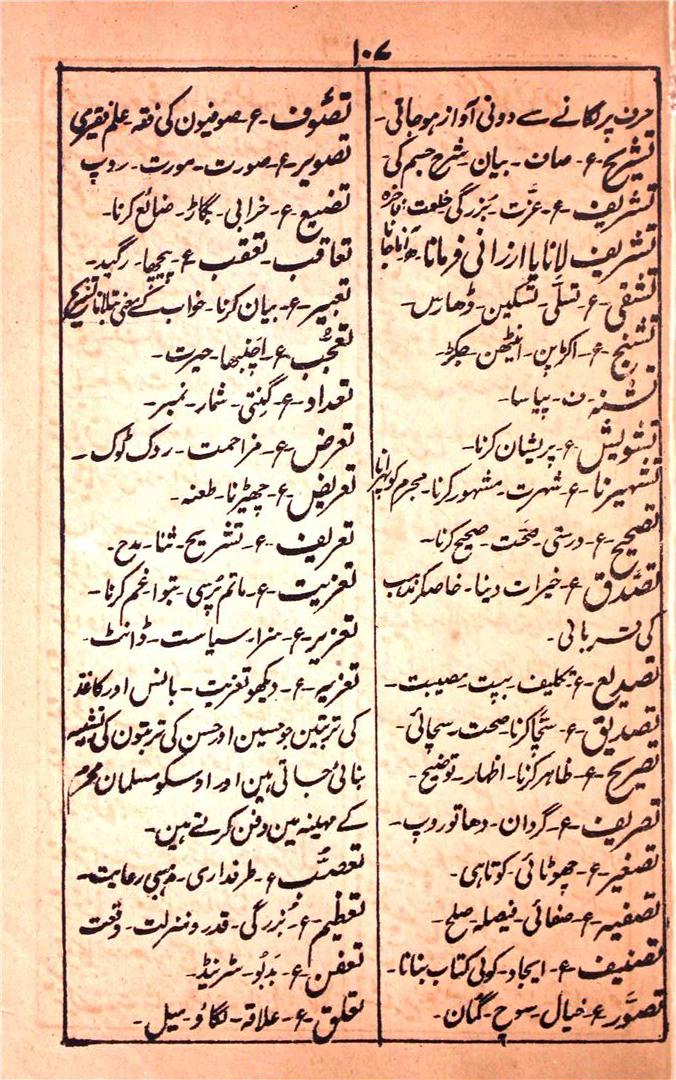 ۱۰۷
حرف پر لگانے سے دونی آواز ہو جاتی-
تشریح-ع- صاف- بیان- شرح جسم کی
تشریف-ع- عزّت- بزرگی خلعت- فاخرہ
تشریف لانا یا ارزانی فرمانا- آنا جانا
تشفی-ع- تسلّی- تسکین- ڈھارس-
تشنج-ع- اکڑپن- اینٹھن- جکڑ-
تشنہ-ف- پیاسا-
تشویش-ع- پریشان کرنا-
تشہیرنا-ع- شہرت- مشہور کرنا- مجرم کو پھرانا
تصحیح-ع- درستی- صحّت- صحیح کرنا-
تصدّق-ع- خیرات دینا- خاصکر مذہب
کی قربانی-
تصدیع-ع- تکلیف- بپت- مصیبت-
تصدیق-ع- سچّا کرنا- صحت- سچائی-
تصریح-ع- ظاہر کرنا- اظہار- توضیح-
تصریف-ع- گردان- دھاتو روپ-
تصغیر-ع- چھوٹائی- کوتاہی-
تصفیہ-ع- صفائی- فیصلہ- صلح-
تصنیف-ع- ایجاد- کوئی کتاب بنانا-
تصوّر-ع- خیال- سوچ- گمان-
تصوّف-ع- صوفیون کی فقہ- علم فقیری
تصویر-ع- صورت- مورت- روپ
تضیع-ع- خرابی- بگاڑ- ضائع کرنا-
تعاقب- تعقب-ع- پیچھا- رگید-
تعبیر-ع- بیان کرنا- خواب کے معنی بتلانا- تشریح
تعجّب-ع- اچنبھا- حیرت-
تعداد-ع- گنتی- شمار- نمبر-
تعرض-ع- مزاحمت- روک ٹوک-
تعریض-ع- چھیڑنا- طعنہ-
تعریف-ع- تشریح- ثنا- مدح-
تعزیت-ع- ماتم پُرسی- غم کرنا-
تعزیر-ع- سزا- سیاست- ڈانٹ-
تعزیہ-ع- دیکھو تعزیت- بانس اور کاغذ
کی تربتین جو حسین اور حسن کی تربتون کی تشبیہ
بنائی جاتی ہین اور اوسکو مسلمان محرم
کے مہینہ مین دفن کرتے ہین-
تعصّب-ع- طرفداری- مذہبی رعایت-
تعظیم-ع- بُزرگی- قدر و منزلت- وقعت
تعفن-ع- بدبُو- سڑنیڈ-
تعلق-ع- علاقہ- لگاؤ- میل-